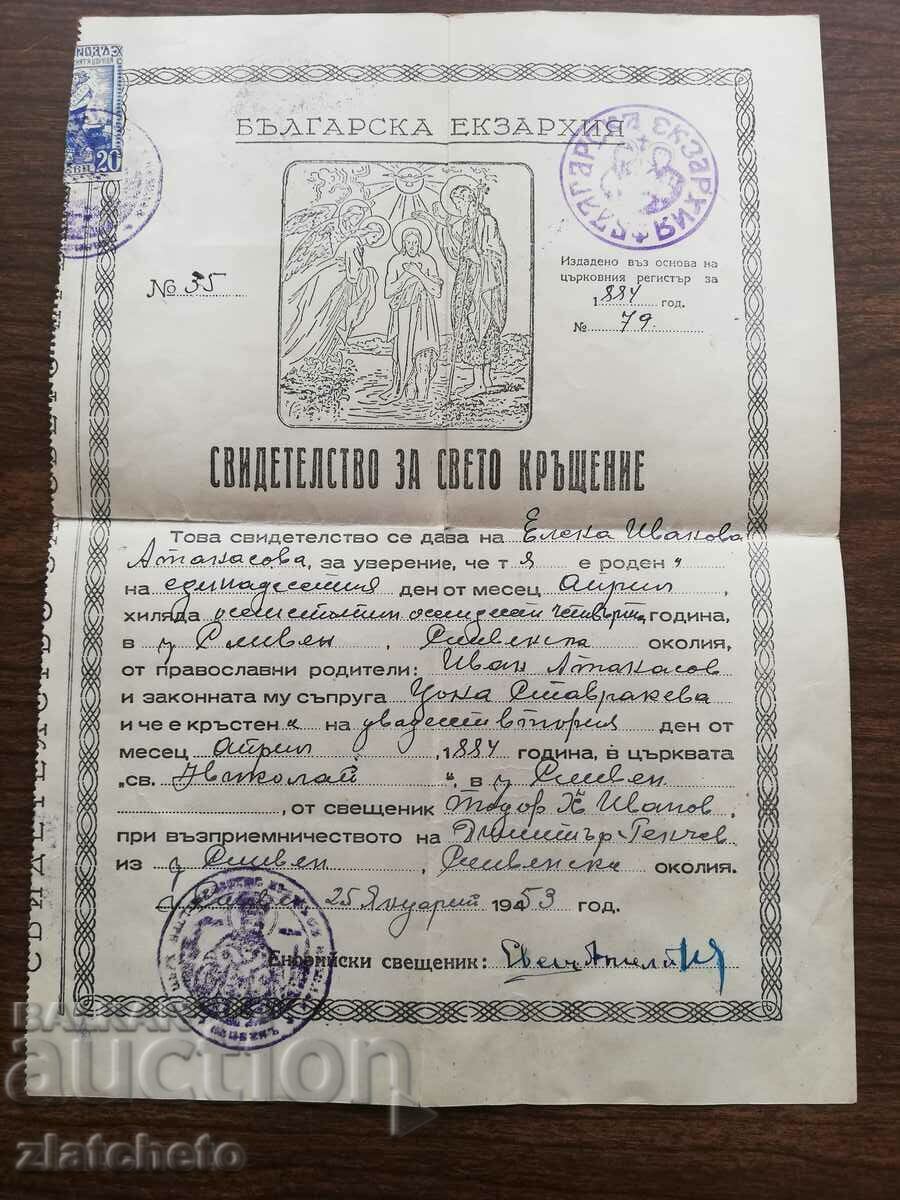 БЪЛГАРСКА ЕКЗАРХИЯ
БЪЛГАРСКА ЕКЗАРХИЯ
20
№ 35
Издадено въз основа на
църковния регистър за
1884 год.
№ 79.
СВИДЕТЕЛСТВО ЗА СВЕТО КРЪЩЕНИЕ
Това свидетелство се дава на Елена Иванова
Атанасова, за уверение, че тя е роден
на единадесетия ден от месец април
хиляда осемстотин осемдесет четвърта година,
в г. Сливен, Сливенска околия,
от православни родители: Иван Атанасов
и законната му съпруга Цона Ставракева
и че е кръстена на двадесет втория ден от
месец април, 1884 година, в църквата
„св. Николай“, в г. Сливен
, от свещеник Тодор Х Иванов,
при възприемничеството на Димитър Генчев
из г. Сливен, Сливенска околия.
25 Януарий 1953 год.
Енорийски свещеник:
BALKAN
auction
zlatcheto